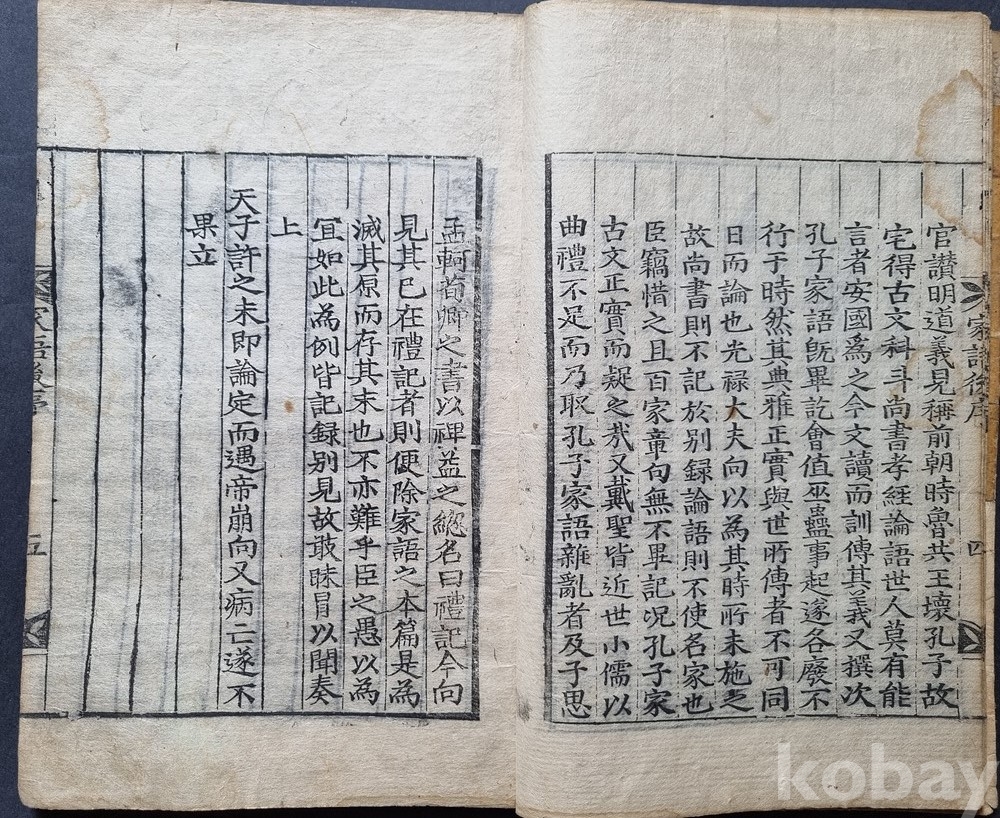 家語後序
四
官讃明道義見稱前朝時魯共王壞孔子故
宅得古文科斗尚書孝經論語世人莫有能
言者安國爲之今文讀而訓傳其義又撰次
孔子家語旣畢訖會値巫蠱事起遂各廢不
行于時然其典雅正實與世所傳者不可同
日而論也光禄大夫向以為其時所未施之
故尚書則不記於別録論語則不使名家也
臣竊惜之且百家章句無不畢記况孔子家
古文正實而疑之㢤又戴聖皆近世小儒以
曲禮不足而乃取孔子家語雜亂者及子思
孟軻荀卿之書以裨益之緫名曰禮記今向
見其已在禮記者則便除家語之本篇是為
滅其原而存其末也不亦難乎臣之愚以為
冝如此為例皆記録别見故敢昧冒以聞奏
上
天子許之未即論定而遇帝崩向又病亡遂不
果立
家語後序
五
kobay